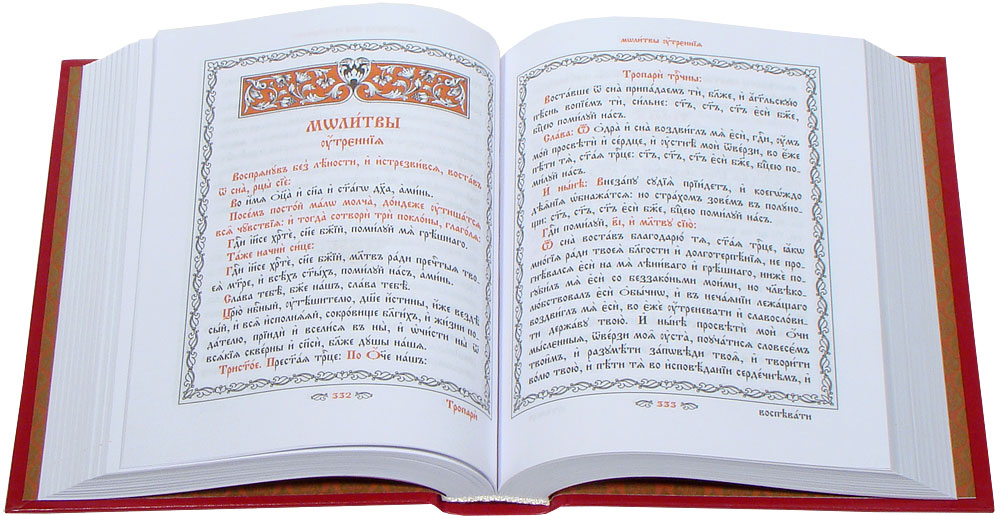 МѠЛИ́ТВЫ
ᲂу҆́трєннїѧ
Воспрѧнꙋ́въ без̾ лѣ́ности, и҆ и҆стрезви́всѧ, воста́въ
ѿ сна̀, рцы̀ сїѐ:
Во и҆́мѧ ѻ҆ц҃а̀ и҆ сн҃а и҆ ст҃а́гѡ дх҃а, а҆ми́нь.
Посе́мъ посто́й ма́лѡ мо́лча, до́ндеже ᲂу҆тиша́тсѧ
всѧ҄ чꙋ҄вствїѧ: и҆ тогда̀ сотворѝ трѝ покло́ны, глаго́лѧ:
Гдⷭ҇и і҆и҃се хрⷭ҇тѐ, сн҃е бж҃їй, поми́лꙋй мѧ̀ грѣ́шнаго.
Та́же начнѝ си́це:
Гдⷭ҇и і҆и҃се хрⷭ҇тѐ, сн҃е бж҃їй, мл҃твъ ра́ди пречⷭ҇тыѧ тво-
еѧ̀ мт҃ре, и҆ всѣ́хъ ст҃ы́хъ, поми́лꙋй на́съ, а҆ми́нь.
Сла́ва тебѣ̀, бж҃е на́шъ, сла́ва тебѣ̀.
Цр҃ю̀ нбⷭ҇ный, ᲂу҆тѣ́шителю, дш҃е и҆́стины, и҆́же вездѣ̀
сы́й, и҆ всѧ҄ и҆сполнѧ́ѧй, сокро́вище бл҃ги́хъ, и҆ жи́зни по-
да́телю, прїидѝ и҆ всели́сѧ въ ны̀, и҆ ѡ҆чи́сти ны̀ ѿ
всѧ́кїѧ скве́рны и҆ сп҃сѝ, бл҃же дꙋ́шы на́шѧ.
Трист҃о́е. Прест҃а́ѧ трⷪ҇це: По Ѻ҆́ч҃е на́шъ:
332
Тропари̑
мѡли́твы ᲂу҆́трєннїѧ
Тропари̑ трⷪ҇чны:
Воста́вше ѿ сна̀ припа́даемъ тѝ, бл҃же, и҆ а҆́гг҃льскꙋю
пѣ́снь вопїе́мъ тѝ, си́льне: ст҃ъ, ст҃ъ, ст҃ъ є҆сѝ бж҃е,
бцⷣею поми́лꙋй на́съ.
Сла́ва: Ѿ ѻ҆дра̀ и҆ сна̀ воздви́глъ мѧ̀ є҆сѝ, гдⷭ҇и, ᲂу҆́мъ
мо́й просвѣтѝ и҆ се́рдце, и҆ ᲂу҆стнѣ̀ моѝ ѿве́рзи, во є҆́же
пѣ́ти тѧ̀, ст҃а́ѧ трⷪ҇це: ст҃ъ, ст҃ъ, ст҃ъ є҆сѝ бж҃е, бцⷣею по-
ми́лꙋй на́съ.
И҆ ны́нѣ: Внеза́пꙋ сꙋдїѧ̀ прїи́детъ, и҆ коегѡ́ждо
дѣѧ̑нїѧ ѡ҆бнажа́тсѧ: но стра́хомъ зове́мъ въ полꙋ́но-
щи: ст҃ъ, ст҃ъ, ст҃ъ є҆сѝ бж҃е, бцⷣею поми́лꙋй на́съ.
Гдⷭ҇и поми́лꙋй, в҃і, и҆ мл҃твꙋ сїю̀:
Ѿ сна̀ воста́въ благодарю̀ тѧ̀, ст҃а́ѧ трⷪ҇це, ꙗ҆́кѡ
мно́гїѧ ра́ди твоеѧ̀ бл҃гости и҆ долготерпѣ́нїѧ, не про-
гнѣ́валсѧ є҆сѝ на мѧ̀ лѣни́ваго и҆ грѣ́шнаго, нижѐ по-
гꙋби́лъ мѧ̀ є҆сѝ со беззако́ньми мои́ми, но чл҃вѣко-
лю́бствовалъ є҆сѝ ѻ҆бы́чнѡ, и҆ въ неча́ѧнїи лежа́щаго
воздви́глъ мѧ̀ є҆сѝ, во є҆́же ᲂу҆́треневати и҆ славосло́ви-
ти держа́вꙋ твою̀. И҆ ны́нѣ просвѣтѝ моѝ ѻ҆́чи
мы́слєнныѧ, ѿве́рзи моѧ̑ ᲂу҆ста̀, поꙋча́тисѧ словесє́мъ
твои҄мъ, и҆ разꙋмѣ́ти за́пѡвѣди твоѧ̑, и҆ твори́ти
во́лю твою̀, и҆ пѣ́ти тѧ̀ во и҆сповѣ́данїи серде́чнѣмъ, и҆
333
воспѣва́ти